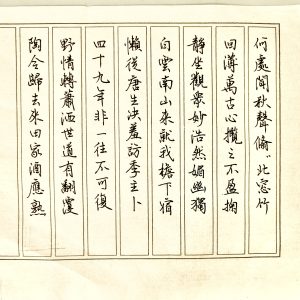 何處聞秋聲翛〻北窓竹
回薄萬古心攬之不盈掬
静坐觀衆妙浩然媚幽獨
白雲南山来就我檐下宿
懶從唐生决羞訪季主卜
四十九年非一往不可復
野情轉蕭洒世道有翻覆
陶令歸去来田家酒應熟